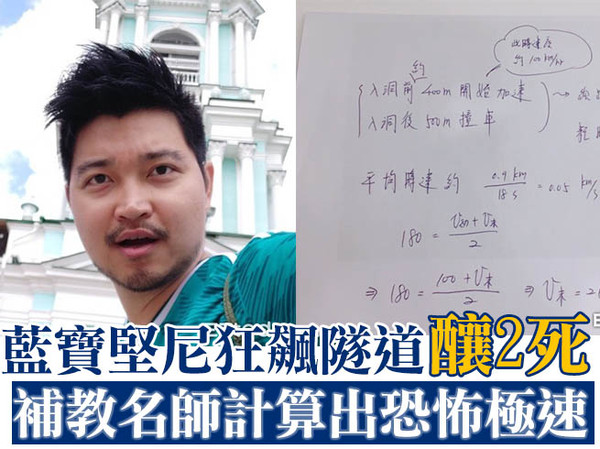 此時速度
約 100 km/hr
約
入洞前 400m 開始加速
入洞後 500m 撞車
平均時速約 0.9 km / 18 s = 0.05 km/s
180 = (V初 + V末) / 2
⇒ 180 = (100 + V末) / 2 ⇒ V末 = 2
藍寶堅尼狂飆隧道釀2死
補教名師計算出恐怖極速